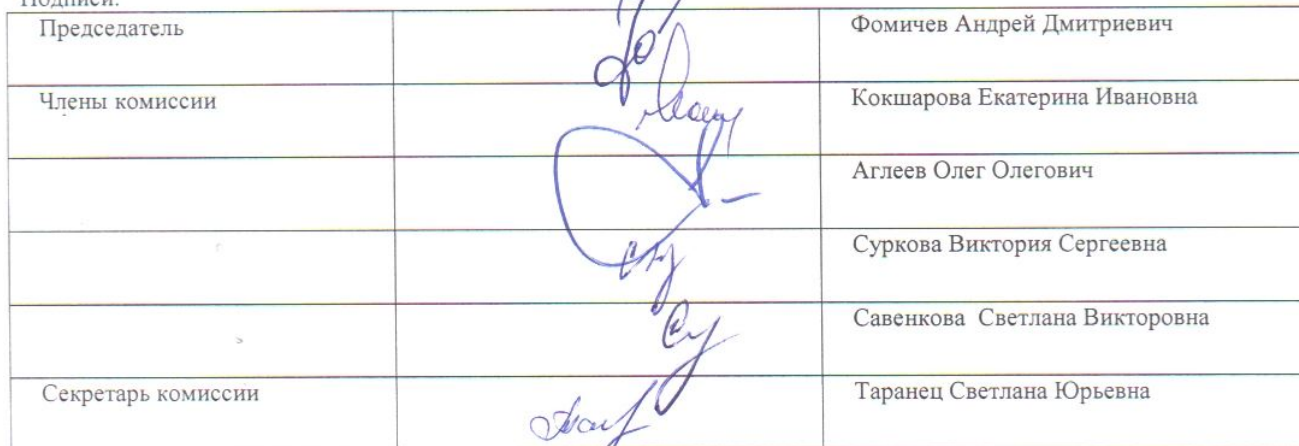 Подписи:
Председатель Фомичев Андрей Дмитриевич
Члены комиссии Кокшарова Екатерина Ивановна
Аглеев Олег Олегович
Суркова Виктория Сергеевна
Савенкова Светлана Викторовна
Секретарь комиссии Таранец Светлана Юрьевна